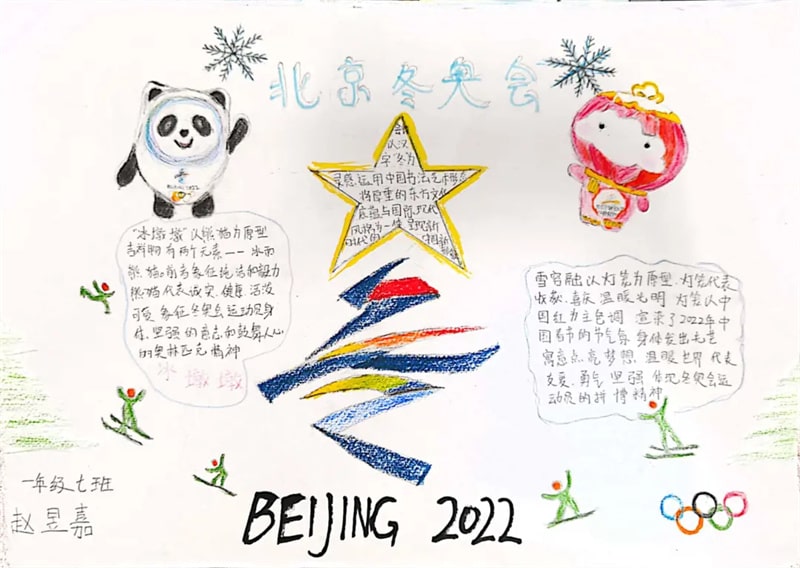 北京冬奥会
会徽
以汉
字"冬"为
灵感,运用中国书法艺术形态
将厚重的东方文化
底蕴与国际现代
风格为一体 呈现新
"冰墩墩"以熊猫为原型
吉祥物有两个元素——冰和
熊猫。前者象征纯洁和魅力
熊猫代表诚实、健康、活泼
可爱 象征冬奥会运动员身
体、坚强的意志和鼓舞人心
的奥林匹克精神
冰墩墩
雪容融以灯笼为原型.灯笼代表
收获.喜庆 温暖光明 灯笼以中
国红为主色调 渲染了2022年中
国春节的节气氛 身体发出光芒
寓意点亮梦想 温暖世界 代表
友爱、勇气 坚强 体现冬奥会运
动员的拼搏精神
一年级七班
赵昱嘉
BEIJING 2022